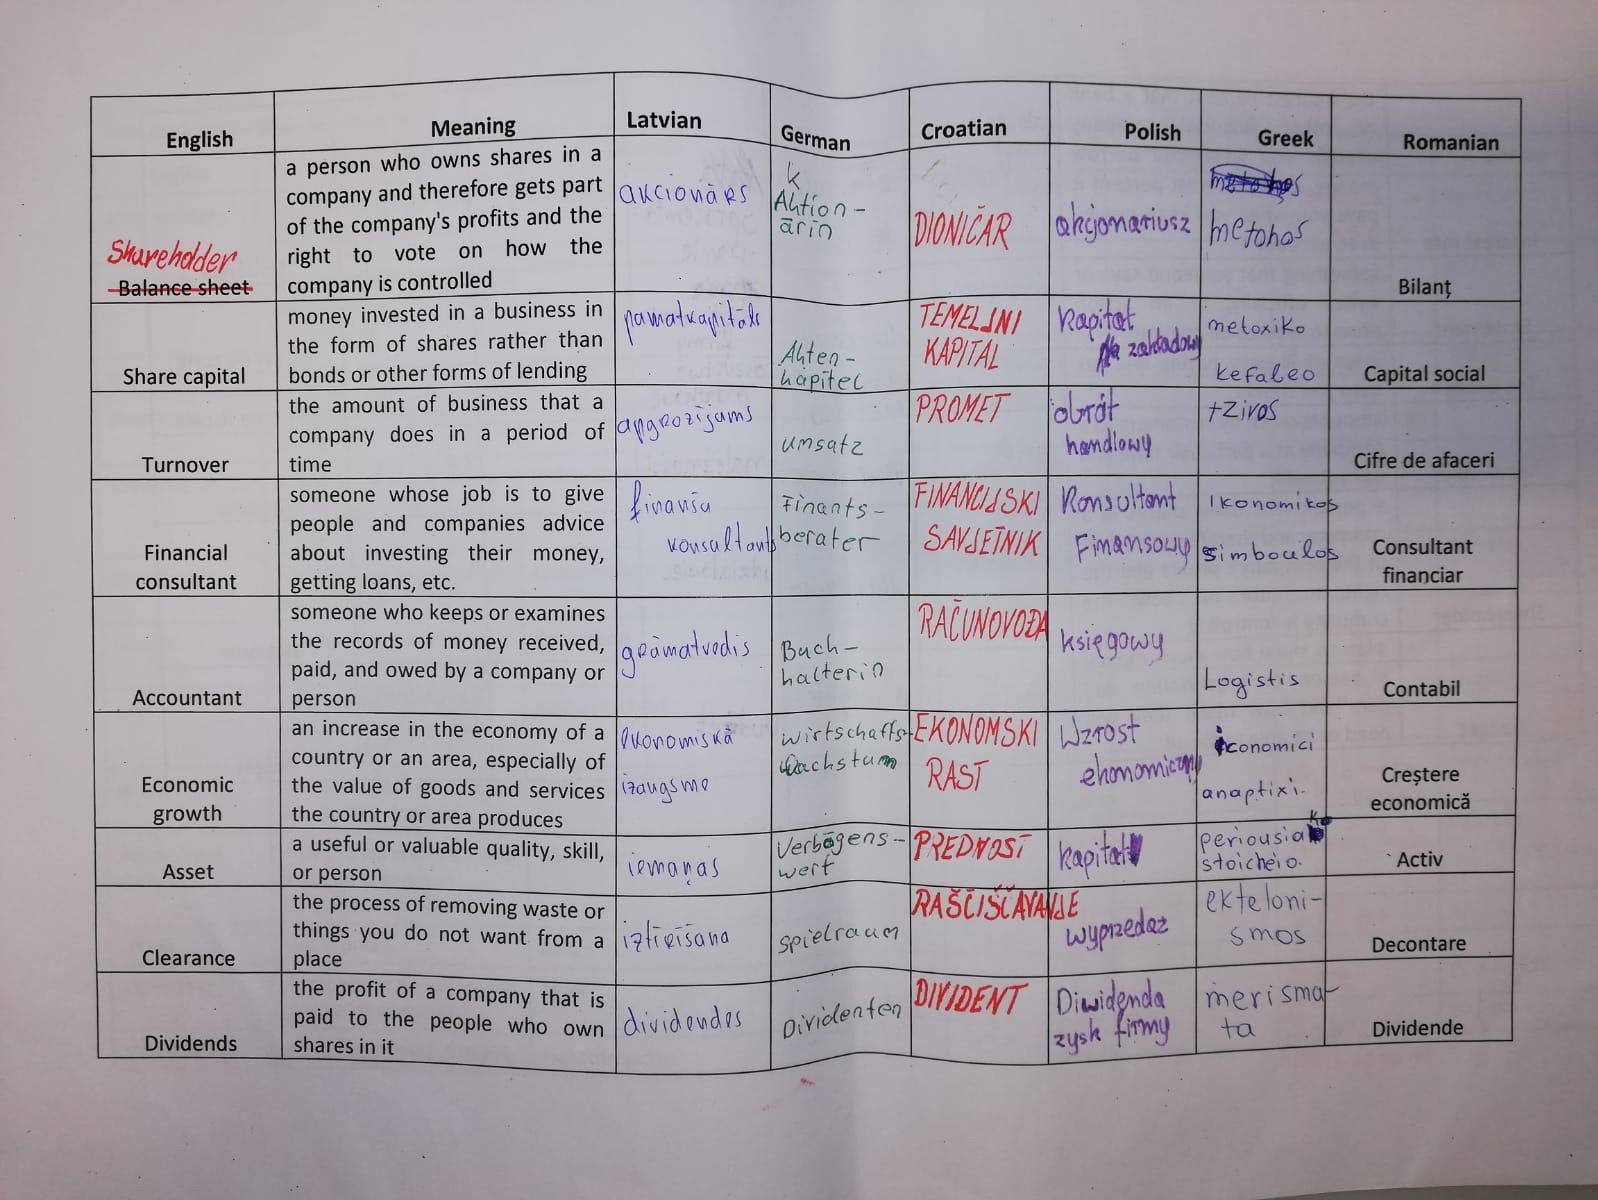 English Meaning Latvian German Croatian Polish Greek Romanian
Shareholder
Balance sheet
a person who owns shares in a
company and therefore gets part
of the company's profits and the
right to vote on how the
company is controlled
akcionārs
k
Ahtion-
ärin
DIONIČAR
akcjonariusz
metohos
metohos
Bilanț
Share capital
money invested in a business in
the form of shares rather than
bonds or other forms of lending
pamatkapitāls
Ahten-
kapitel
TEMELJNI
KAPITAL
Kapitał
zakładowy
metoxiko
kefaleo
Capital social
Turnover
the amount of business that a
company does in a period of
time
apgrozījums
umsatz
PROMET
obrót
handlowy
tziros
Cifre de afaceri
Financial
consultant
someone whose job is to give
people and companies advice
about investing their money,
getting loans, etc.
finanšu
konsultants
Finants-
berater
FINANCIJSKI
SAVJETNIK
Konsultant
Finansowy
Ikonomikos
simboulos
Consultant
financiar
Accountant
someone who keeps or examines
the records of money received,
paid, and owed by a company or
person
grāmatvedis
Buch-
halterin
RAČUNOVOĐA
księgowy
Logistis
Contabil
Economic
growth
an increase in the economy of a
country or an area, especially of
the value of goods and services
the country or area produces
ekonomiskā
izaugsme
wirtschafts-
wachstum
EKONOMSKI
RAST
Wzrost
ekonomiczny
iconomici
anaptixi.
Creștere
economică
Asset
a useful or valuable quality, skill,
or person
iemaņas
Verbögens-
wert
PREDNOST
kapitał
periousiako
stoicheio.
Activ
Clearance
the process of removing waste or
things you do not want from a
place
iztīrīšana
spielraum
RAŠČIŠĆAVANJE
wyprzedaż
ekteloni-
smos
Decontare
Dividends
the profit of a company that is
paid to the people who own
shares in it
dividendes
Dividenten
DIVIDENT
Diwidenda
zysk firmy
merisma-
ta
Dividende